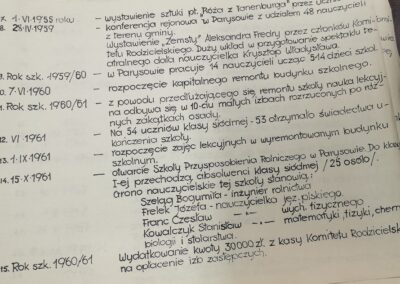 7. 1·VI·1955 roku – wystawienie sztuki pt. "Róża z Tanenburga" przez
8. 28·IV·1959 – konferencja rejonowa w Parysowie z udziałem 48 nauczycieli
z terenu gminy.
wystawienie „Zemsty" Aleksandra Fredry przez członków Komi-
tetu Rodzicielskiego. Duży wkład w przygotowanie spektaklu te-
atralnego dała nauczycielka Krysztop Władysława.
9. Rok szk. 1959/60 – w Parysowie pracuje 14 nauczycieli ucząc 514 dzieci
10. 7·VI·1960 – rozpoczęcie kapitalnego remontu budynku szkolnego.
11. Rok szk. 1960/61 – z powodu przedłużającego się remontu szkoły nauka lekcyj-
na odbywa się w 10-ciu małych izbach rozrzuconych po róż-
nych zakątkach osady.
12. VI·1961 – Na 54 uczniów klasy siódmej – 53 otrzymało świadectwa u-
kończenia szkoły.
13. 1·IX·1961 – rozpoczęcie zajęć lekcyjnych w wyremontowanym budynku
szkolnym.
14. 15·X·1961 – otwarcie Szkoły Przysposobienia Rolniczego w Parysowie. Do klasy
I-ej przechodzą absolwenci klasy siódmej /25 osób/.
Grono nauczycielskie tej szkoły stanowią:
Szeląg Bogumiła – inżynier rolnictwa
Frelek Józefa – nauczycielka jęz. polskiego.
Franc Czesław –„– wych. fizycznego
Kowalczyk Stanisław –„– matematyki, fizyki, chem
biologii i stolarstwa.
15. Rok szk. 1960/61 Wydatkowanie kwoty 30000 zł. z kasy Komitetu
na opłacenie izb zastępczych.